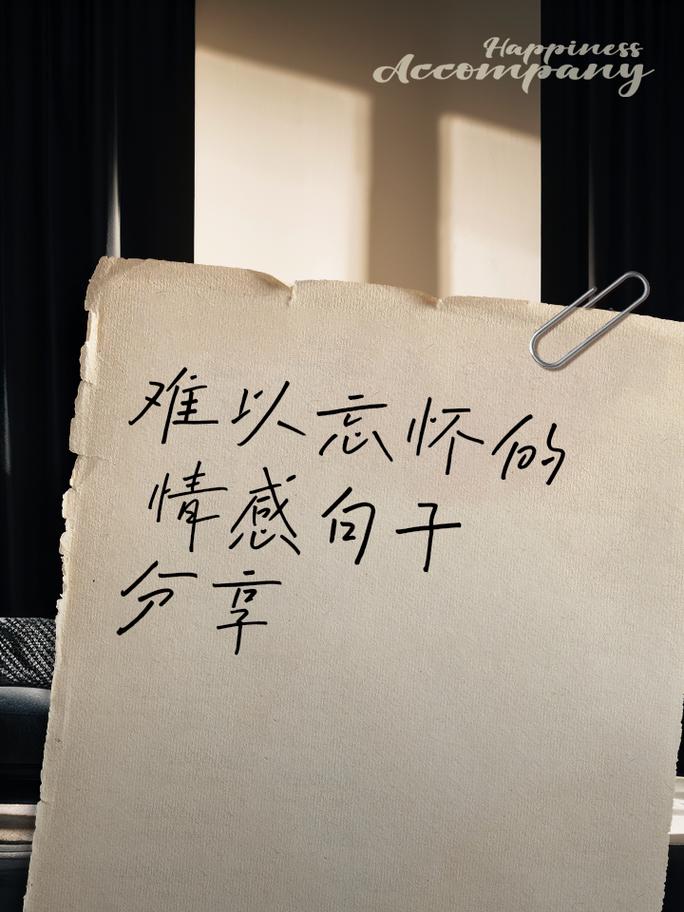 Happiness
Accompany
难以忘怀的
情感句子
分享